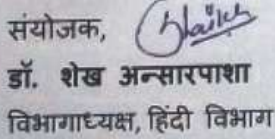 संयोजक,
डॉ. शेख अन्सारपाशा
विभागाध्यक्ष, हिंदी विभाग